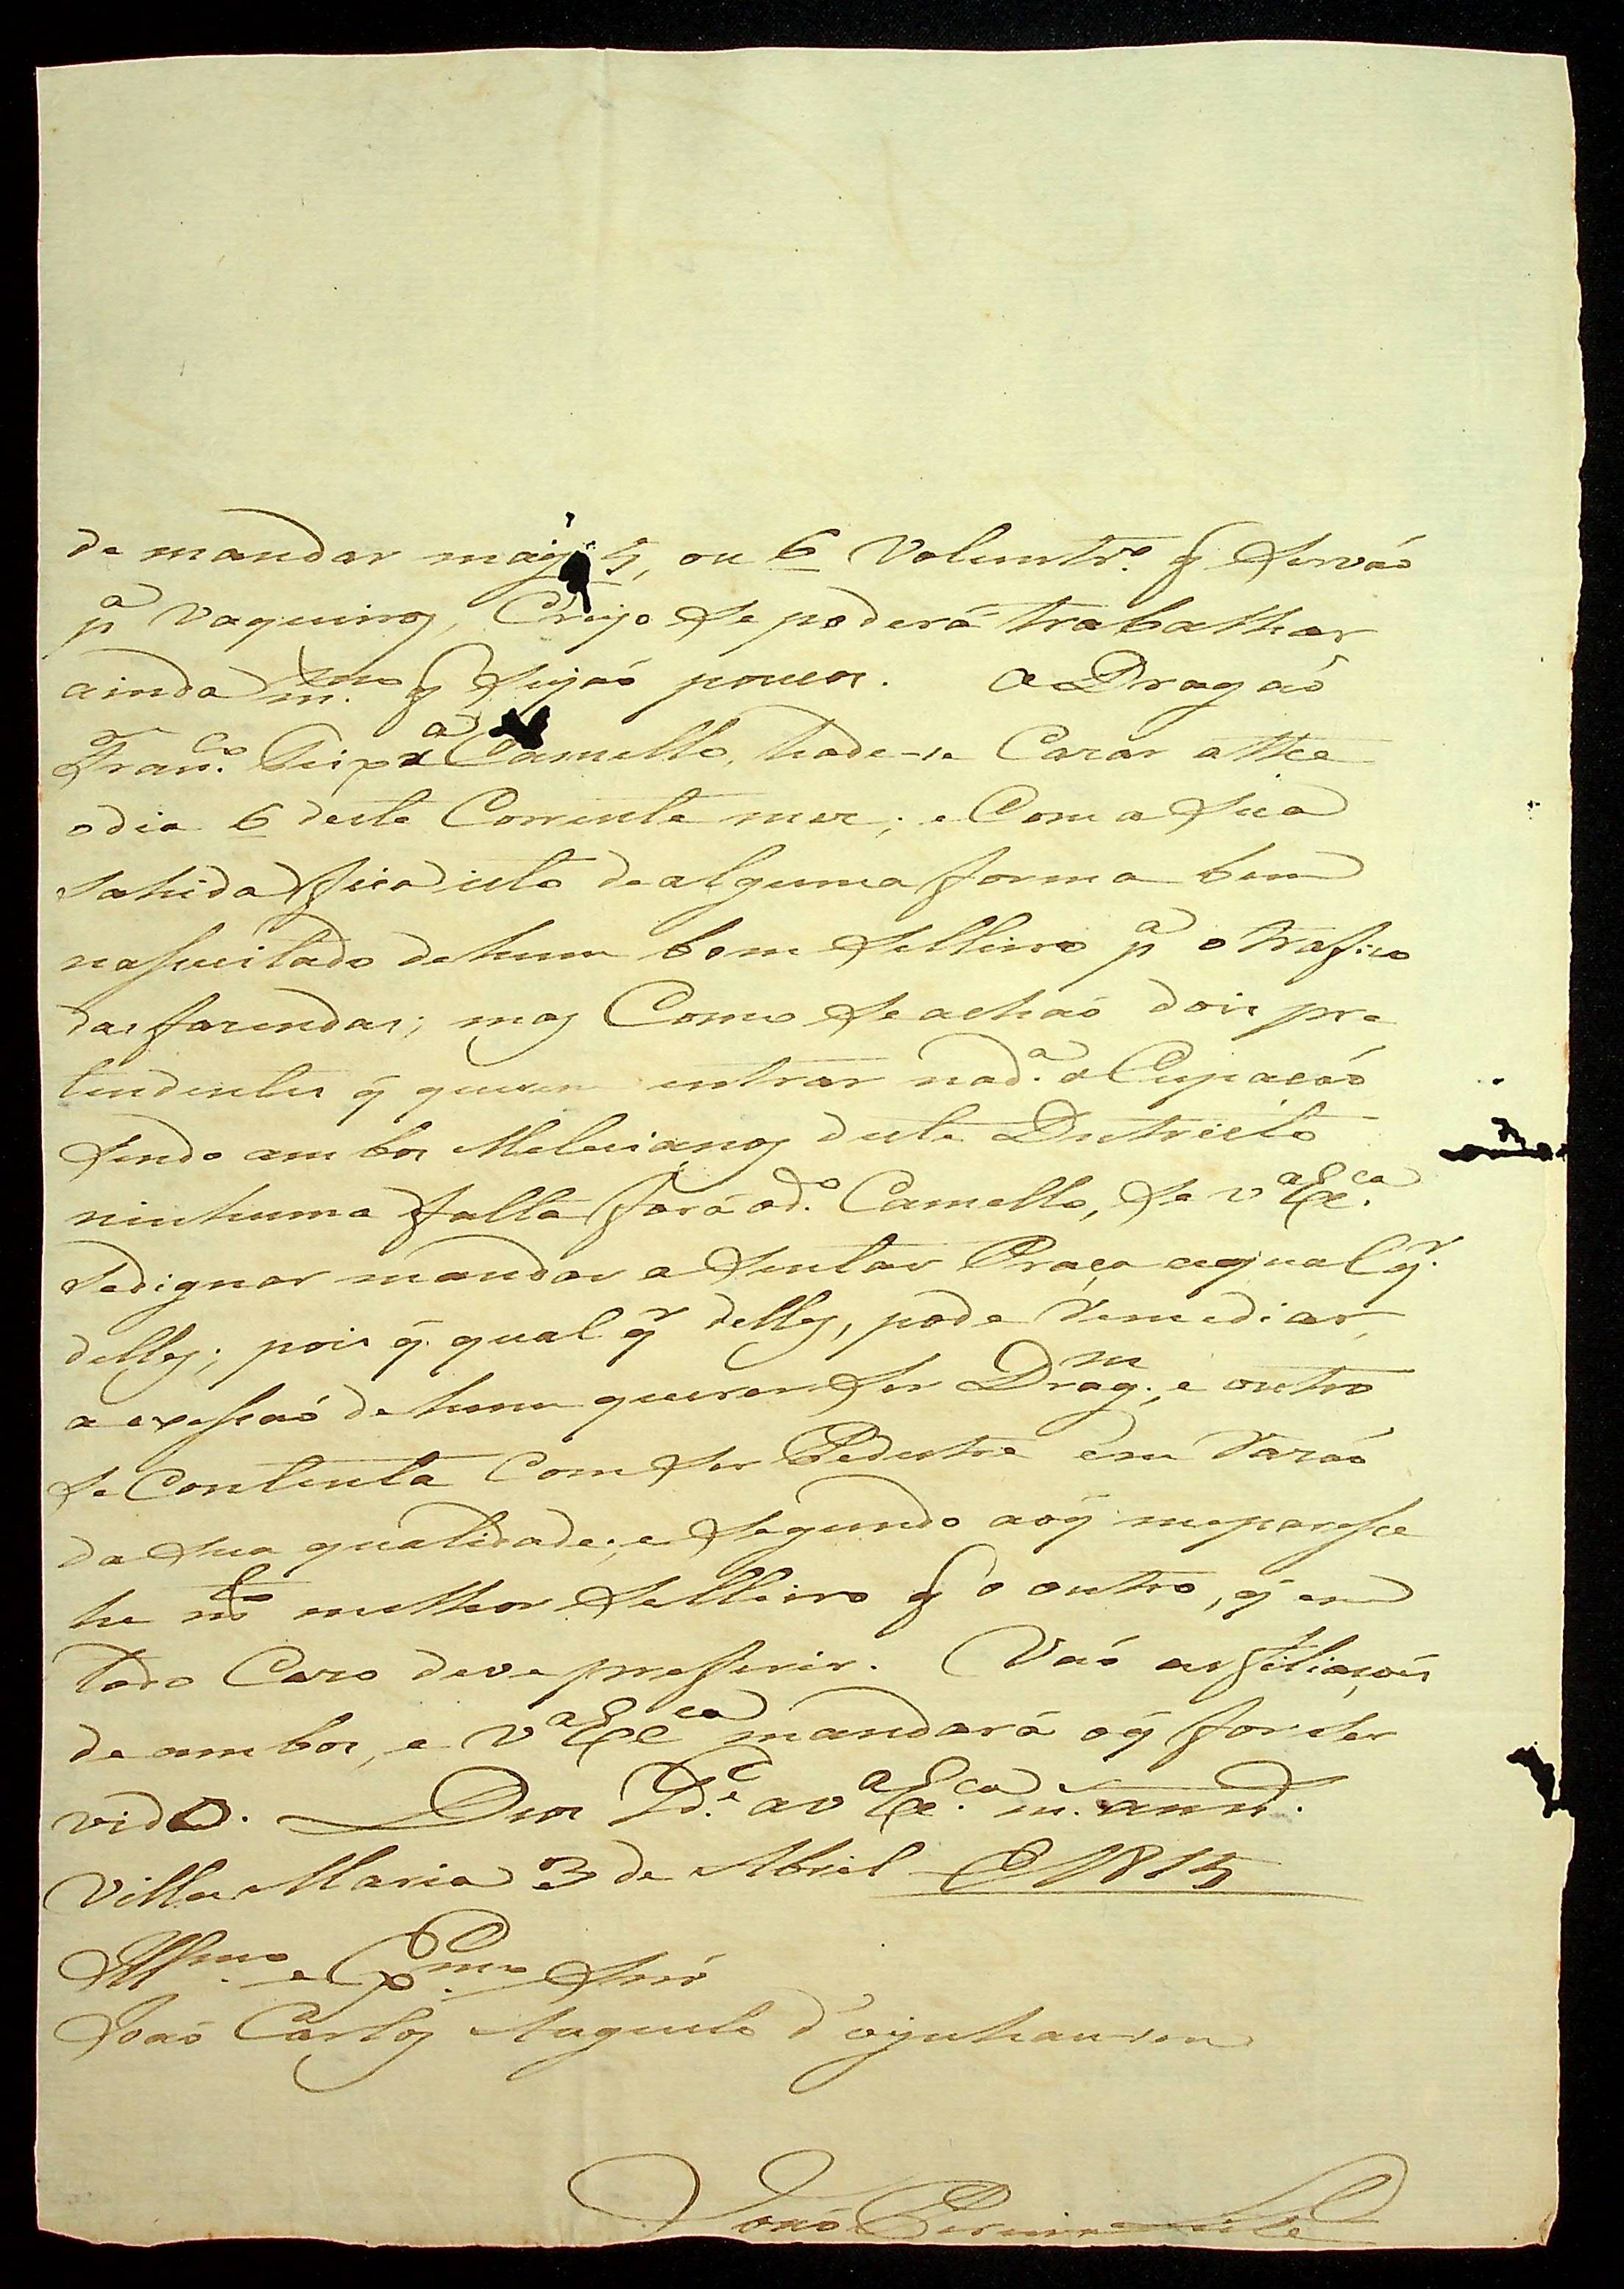 de mandar mais 5, ou 6 Voluntr.º q̃ Sirvaõ
p.ª Vaqueiros, Creyo Se poderá trabalhar
ainda m.mo q̃ Sejaõ poucos. O Dragaõ
Fran.co Teixr.ª Camello, hade-se Cazar athe
o dia 6 deste Corrente mez; e Com a Sua
Sahida fica isto de alguma forma bem
nasceçitado de hum bom Selleiro p.ª o trafico
das fazendas; mas Como Se achaõ dois pre
tendentes q̃ querem entrar na d.ª oCupacaõ
Sendo ambos Melecianos deste Destricto
ninhuma falta fará o d.º Camello, Se V.ª Ex.ca
Sedignar mandar a Sentar Praça a qual q.r
delles; pois q̃ qual q.r delles, pode Remediar,
a exesçaõ de hum querer Ser Drag.m, e outro
Se Contenta Com Ser Pedestre em Razaõ
da Sua qualidade; e Segundo aoq̃ meparesce
he m.to melhor Selleiro q̃ o outro, q̃ em
todo Cazo deve prefferir. Vaõ as filiaçoẽs
de ambos, e V.ª Ex.ca mandará oq̃ for Ser
vido. Deos G.de a V.ª Ex.ca m.s ann.s
Villa Maria 3 de Abril D 1815
Ill.mo e Ex.mo Snr̃
Joaõ Carlos Augusto d'Oyenhausen
Joaõ Pereira Leite